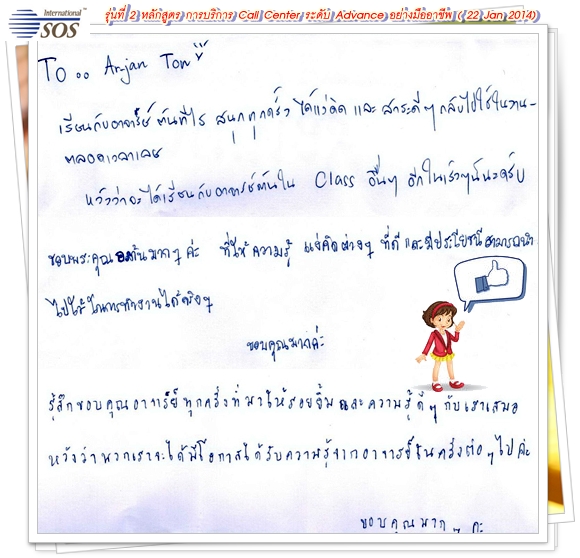 International SOS
รุ่นที่ 2 หลักสูตร การบริการ Call Center ระดับ Advance อย่างมืออาชีพ ( 22 Jan 2014)
To .. Arjan Ton
เรียนกับอาจารย์ต้นทีไร สนุกทุกครั้ง ได้แง่คิด และ สาระดีๆ กลับไปใช้ในงาน-
ตลอดเวลาเลย
หวังว่าจะได้เรียนกับอาจารย์ต้นใน Class อื่นๆ อีกในเร็วๆนี้นะครับ
ขอบพระคุณ อ.ต้นมากๆ ค่ะ ที่ให้ความรู้ แง่คิดต่างๆ ที่ดี และมีประโยชน์สามารถนำ
ไปใช้ในการทำงานได้จริงๆ
ขอบคุณมากค่ะ
รู้สึกขอบคุณอาจารย์ทุกครั้งที่มาให้รอยยิ้ม และความรู้ดีๆ กับเราเสมอ
หวังว่าพวกเราจะได้มีโอกาสได้รับความรู้จากอาจารย์ในครั้งต่อๆไป ค่ะ
ขอบคุณมาก ๆ ค่ะ